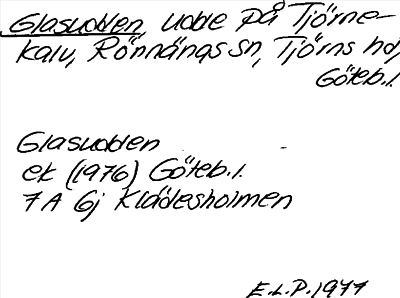 Glasudden, udde på Tjörne-
kalv, Rönnängs sn, Tjörns hd,
Göteb.l.
Glasudden
ek (1976) Göteb.l.
7A 6j Klädesholmen
E.L.P. 1977